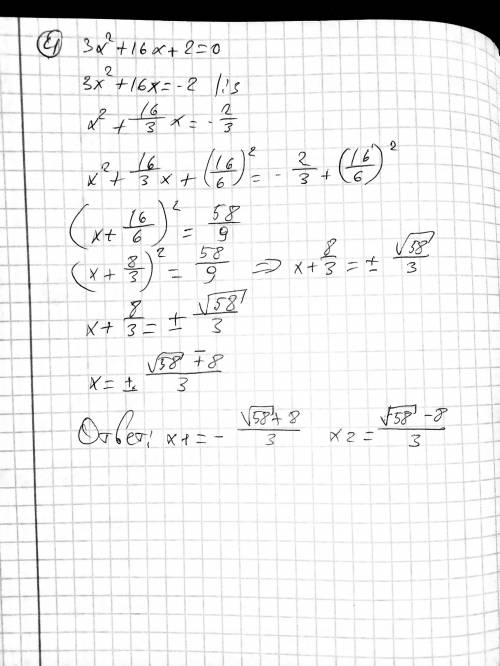 Е) 3x² + 16x + 2 = 0
3x² + 16x = -2 | :3
x² + 16/3 x = - 2/3
x² + 16/3 x + (16/6)² = - 2/3 + (16/6)²
(x + 16/6)² = 58/9
(x + 8/3)² = 58/9 => x + 8/3 = ± √58/3
x + 8/3 = ± √58/3
x = ± (√58 ∓ 8)/3
Ответ: x1 = - (√58 + 8)/3 x2 = (√58 - 8)/3